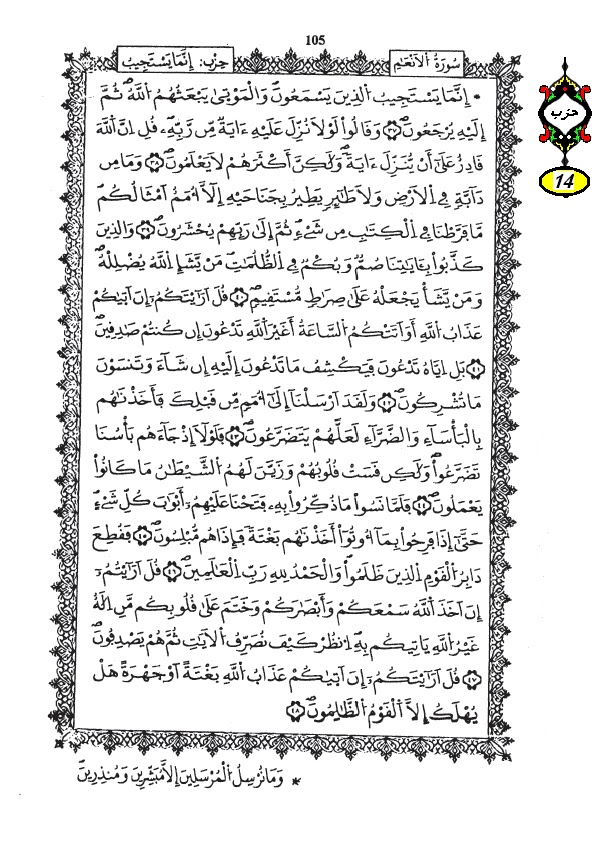 105
سُورَةُ الْاَنْعَامِ
حِزْب: إِنَّمَا يَسْتَجِيبُ
حزب
14
* إِنَّمَا يَسْتَجِيبُ الذِينَ يَسْمَعُونَۖ وَالْمَوْتىٰ يَبْعَثُهُمُ اللَّهُۖ ثُمَّ
إِلَيْهِ يُرْجَعُونَۖ ٣٧ وَقَالُواْ لَوْلَا نُزِّلَ عَلَيْهِ ءَايَةٌ مِّن رَّبِّهِۦۖ قُلِ اِنَّ اَللَّهَ
قَادِرٌ عَلَىٰٓ أَنْ يُّنَزِّلَ ءَايَةًۖ وَلَٰكِنَّ أَكْثَرَهُمْ لَا يَعْلَمُونَۖ ٣٨ وَمَا مِن
دَآبَّةٍ فِے اِلَارْضِ وَلَا طَٰٓئِرٍ يَطِيرُ بِجَنَاحَيْهِ إِلَّآ أُمَمٌ اَمْثَالُكُمۖ
مَّا فَرَّطْنَا فِے اِلْكِتَٰبِ مِن شَےْءٍۖ ثُمَّ إِلَىٰ رَبِّهِمْ يُحْشَرُونَۖ ٣٩ وَالذِينَ
كَذَّبُواْ بِـَٔايَٰتِنَا صُمٌّ وَبُكْمٌ فِے اِلظُّلُمَٰتِۖ مَنْ يَّشَإِ اِللَّهُ يُضْلِلْهُۖ
وَمَنْ يَّشَأْ يَجْعَلْهُ عَلَىٰ صِرَٰطٍ مُّسْتَقِيمٍۖ ٤٠ قُلَ اَرَٰٓيْتَكُمُۥٓ إِنَ اَتٰىكُمْ
عَذَابُ اُللَّهِ أَوَ اَتَتْكُمُ اُلسَّاعَةُ أَغَيْرَ اَللَّهِ تَدْعُونَ إِن كُنتُمْ صَٰدِقِينَۖ
٤١ بَلِ اِيَّاهُ تَدْعُونَ فَيَكْشِفُ مَا تَدْعُونَ إِلَيْهِ إِن شَآءَ وَتَنسَوْنَ
مَا تُشْرِكُونَۖ ٤٢ وَلَقَدَ اَرْسَلْنَآ إِلَىٰٓ أُمَمٍ مِّن قَبْلِكَ فَأَخَذْنَٰهُم
بِالْبَأْسَآءِ وَالضَّرَّآءِ لَعَلَّهُمْ يَتَضَرَّعُونَۖ ٤٣ فَلَوْلَآ إِذْ جَآءَهُم بَأْسُنَا
تَضَرَّعُواْۖ وَلَٰكِن قَسَتْ قُلُوبُهُمْ وَزَيَّنَ لَهُمُ اُلشَّيْطَٰنُ مَا كَانُواْ
يَعْمَلُونَۖ ٤٤ فَلَمَّا نَسُواْ مَا ذُكِّرُواْ بِهِۦ فَتَحْنَا عَلَيْهِمُۥٓ أَبْوَٰبَ كُلِّ شَےْءٍۖ
حَتَّىٰٓ إِذَا فَرِحُواْ بِمَآ أُوتُوٓاْ أَخَذْنَٰهُم بَغْتَةً فَإِذَا هُم مُّبْلِسُونَۖ ٤٥ فَقُطِعَ
دَابِرُ اُلْقَوْمِ اِلذِينَ ظَلَمُواْۖ وَالْحَمْدُ لِلهِ رَبِّ اِلْعَٰلَمِينَۖ ٤٦ قُلَ اَرَٰٓيْتُمُۥٓ
إِنَ اَخَذَ اَللَّهُ سَمْعَكُمْ وَأَبْصَٰرَكُمْ وَخَتَمَ عَلَىٰ قُلُوبِكُم مَّنِ اِلَٰهٌ
غَيْرُ اُللَّهِ يَاتِيكُم بِهِۖ اِنظُرْ كَيْفَ نُصَرِّفُ اُلَايَٰتِ ثُمَّ هُمْ يَصْدِفُونَۖ
٤٧ قُلَ اَرَٰٓيْتَكُمُۥٓ إِنَ اَتٰىكُمْ عَذَابُ اُللَّهِ بَغْتَةً اَوْ جَهْرَةً هَلْ
يُهْلَكُ إِلَّا اَلْقَوْمُ اُلظَّٰلِمُونَۖ ٤٨
* وَمَا نُرْسِلُ اُلْمُرْسَلِينَ إِلَّا مُبَشِّرِينَ وَمُنذِرِينَۖ